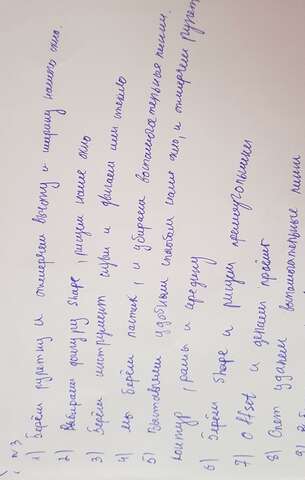 №3
1) Берём рулетку и отмеряем высоту и ширину нашего окна.
2) Выбираем фигуру Shape, рисуем наше окно
3) Берём инструмент шубм и двигаем или стекло
4) мы берём ластик, и убираем вспомогательные линии.
5) Выставляем удобным способом наше окно, и отмеряем рулет
контур рамы и середину
6) Берём Shape и рисуем прямоугольники
7) Offset и делаем проём
8) Снег удаляем вспомогательные линии
9)